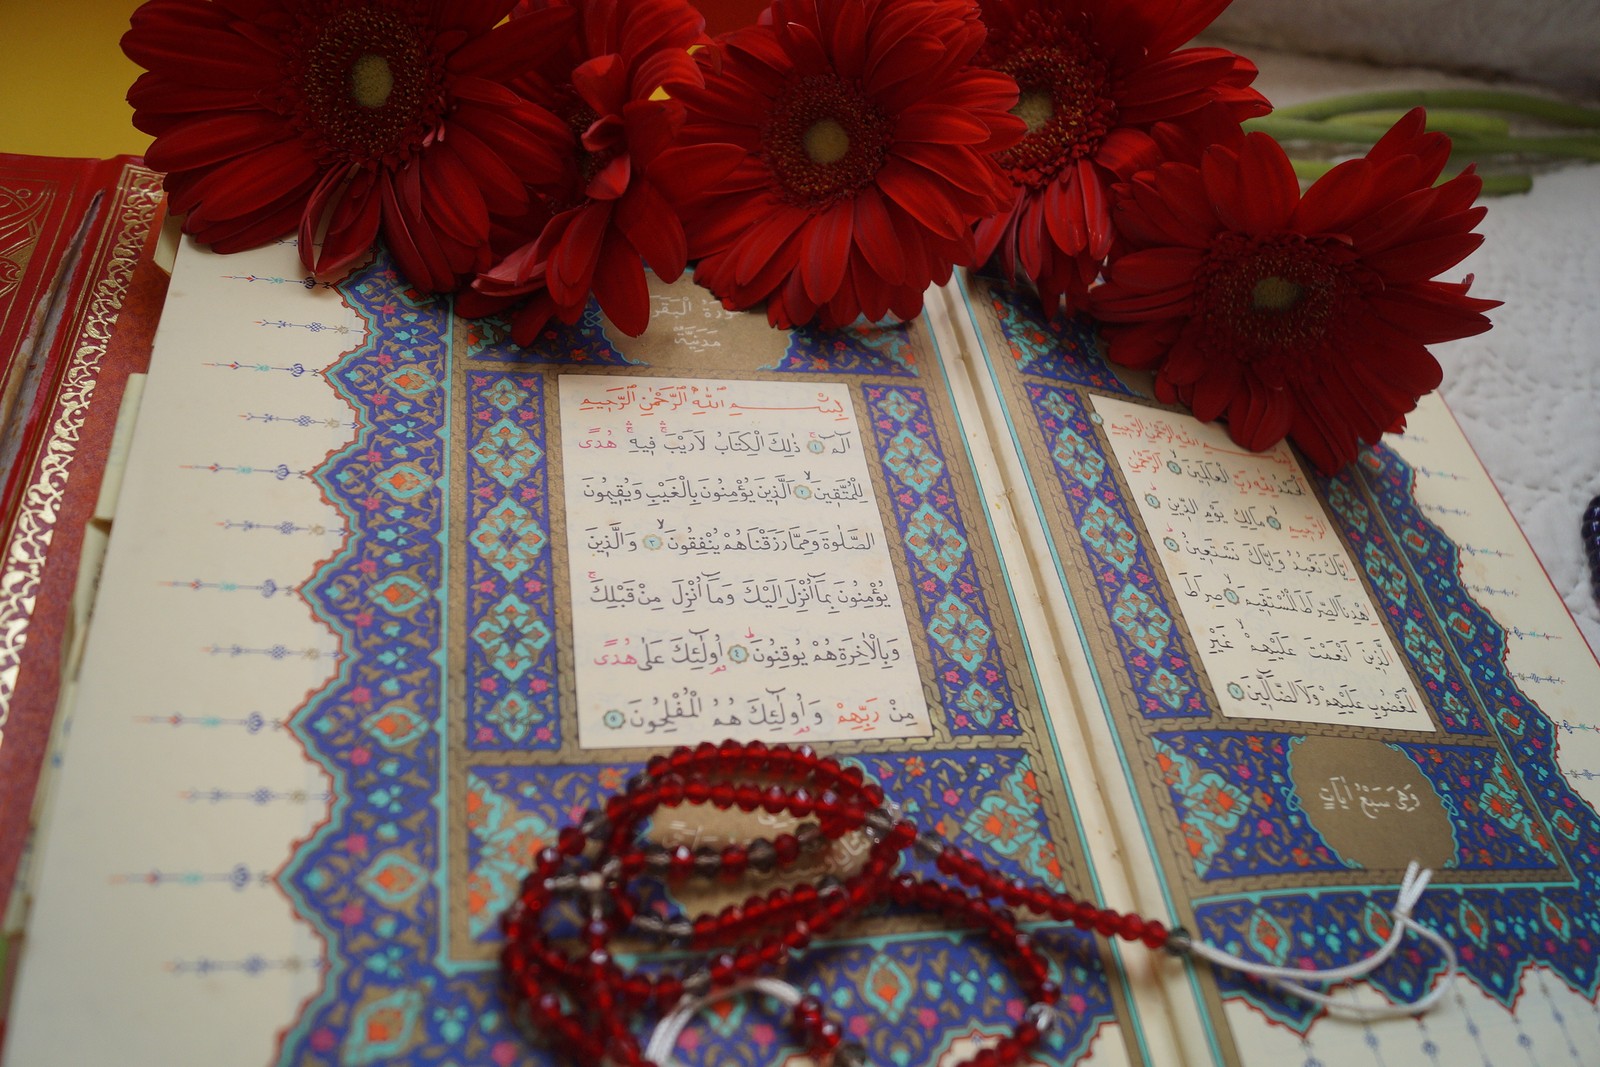 بِسْمِ اللّٰهِ الرَّحْمٰنِ الرَّحِيمِ
اَلْحَمْدُ لِلّٰهِ رَبِّ الْعَالَمِينَ ١ اَلرَّحْمٰنِ
الرَّحِيمِ ٢ مَالِكِ يَوْمِ الدِّينِ ٣
اِيَّاكَ نَعْبُدُ وَاِيَّاكَ نَسْتَعِينُ ٤
اِهْدِنَا الصِّرَاطَ الْمُسْتَقِيمَ ٥ صِرَاطَ
الَّذِينَ اَنْعَمْتَ عَلَيْهِمْ غَيْرِ
الْمَغْضُوبِ عَلَيْهِمْ وَلَا الضَّالِّينَ ٧
وَهِيَ سَبْعُ اٰيَاتٍ
سُورَةُ الْبَقَرَةِ
مَدَنِيَّةٌ
بِسْمِ اللّٰهِ الرَّحْمٰنِ الرَّحِيمِ
الٓمٓ ١ ذٰلِكَ الْكِتَابُ لَا رَيْبَ فِيهِ هُدًى
لِلْمُتَّقِينَ ٢ اَلَّذِينَ يُؤْمِنُونَ بِالْغَيْبِ وَيُقِيمُونَ
الصَّلٰوةَ وَمِمَّا رَزَقْنَاهُمْ يُنْفِقُونَ ٣ وَالَّذِينَ
يُؤْمِنُونَ بِمَٓا اُنْزِلَ اِلَيْكَ وَمَٓا اُنْزِلَ مِنْ قَبْلِكَ
وَبِالْاٰخِرَةِ هُمْ يُوقِنُونَ ٤ اُولٰٓئِكَ عَلٰى هُدًى
مِنْ رَبِّهِمْ وَاُولٰٓئِكَ هُمُ الْمُفْلِحُونَ ٥